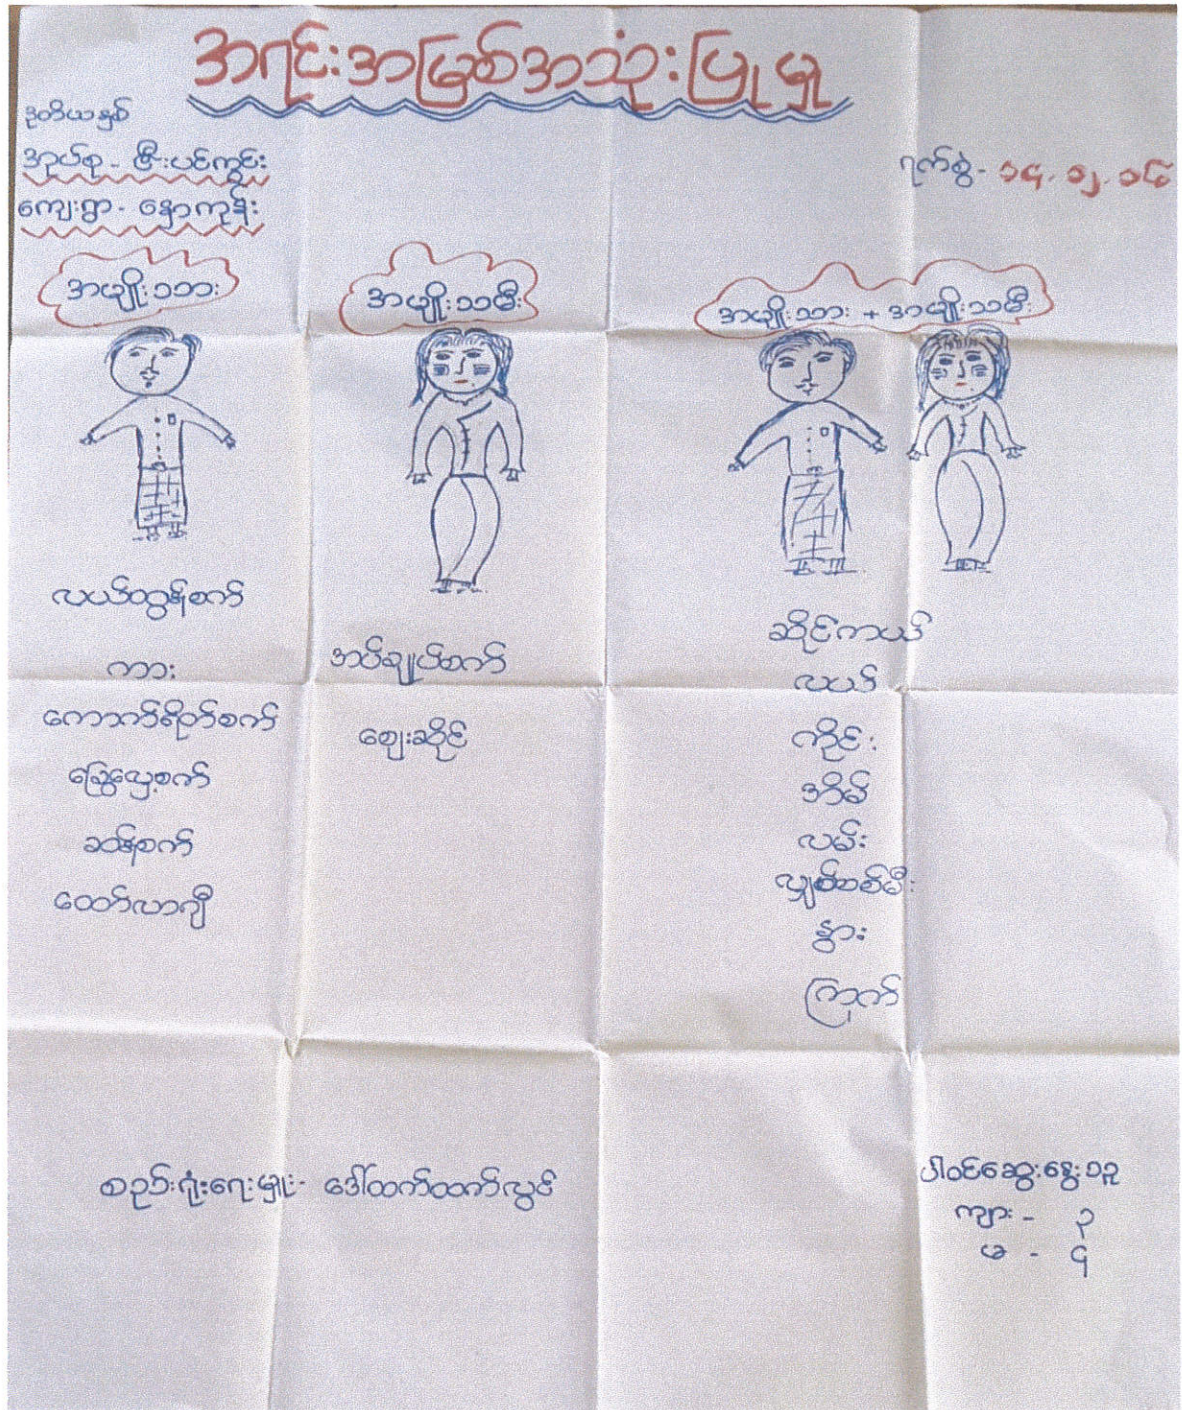 အရင်းအမြစ်အသုံးပြုမှု
ဒုတိယနှစ်
အုပ်စု - ဇီးပင်ကွင်း
ရက်စွဲ - ၁၄.၁၂.၁၆
ကျေးရွာ - နှောကုန်း
အမျိုးသား
အမျိုးသမီး
အမျိုးသား + အမျိုးသမီး
လယ်ထွန်စက်
ကား
ကောက်ရိတ်စက်
ခြွေလှေ့စက်
ခုတ်စက်
ထော်လာဂျီ
အပ်ချုပ်စက်
ဈေးဆိုင်
ဆိုင်ကယ်
လယ်
ကိုင်း
အိမ်
လမ်း
လျှပ်စစ်မီး
နွား
ကြက်
စည်းရုံးရေးမှူး - ဒေါ်ထက်ထက်လွင်
ပါဝင်ဆွေးနွေးသူ
ကျား - ၃
မ - ၄